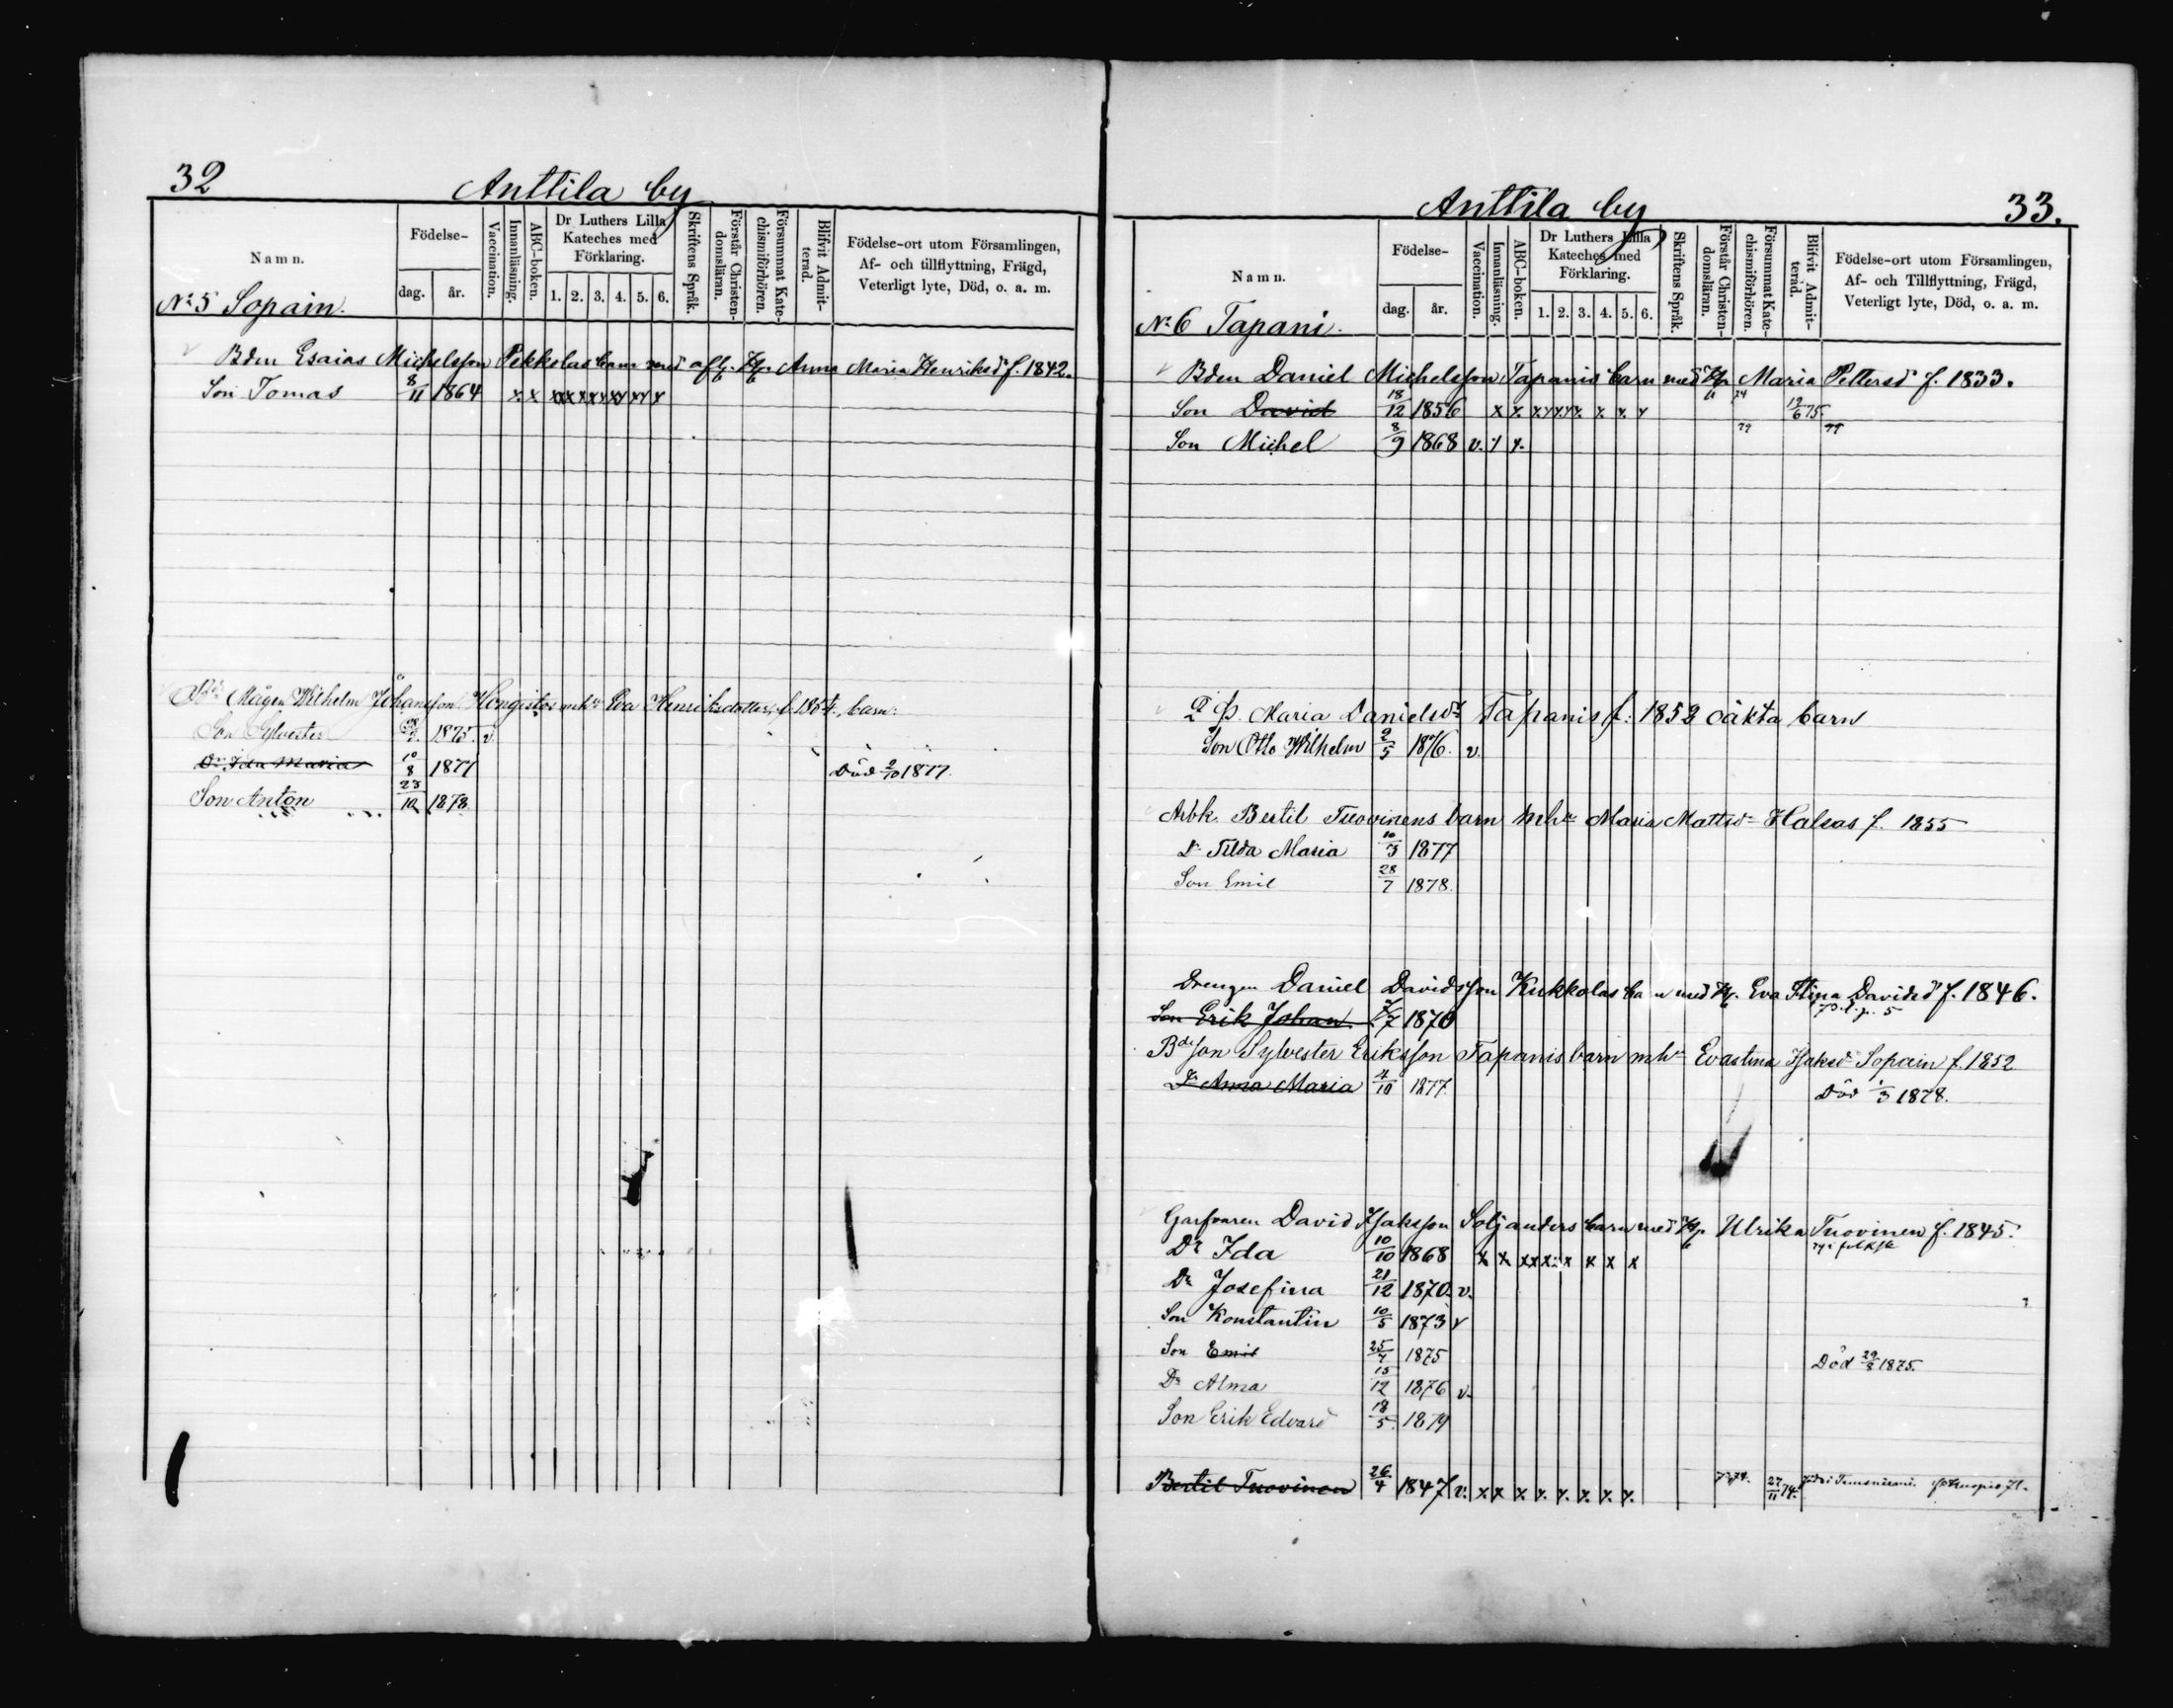 32
Anttila by
Namn.
Födelse-
dag.
år.
Vaccination.
Innanläsning.
ABC-boken.
Dr Luthers Lilla
Kateches med
Förklaring.
1. 2. 3. 4. 5. 6.
Skriftens Språk.
Förstår Christen-
domsläran.
Försummat Kate-
chismiförhören.
Blifvit Admit-
terad.
Födelse-ort utom Församlingen,
Af- och tillflyttning, Frägd,
Veterligt lyte, Död, o. a. m.
No 5 Sopain.
Bden Esaias Michelsson Pekkolas barn med afl. Hu. Anna Maria Henriksdr f. 1842.
Son Tomas 8/11 1864 x x xxx xxx xx xx x
Mågen Wilhelm Johansson Hongistos mhu Eva Henriksdotter, f. 1854, barn:
Son Sylvester 1875. v.
Dr Ida Maria 10/8 1877 Död 2/10 1877.
Son Anton 23/12 1878
33.
Anttila by
Namn.
Födelse-
dag.
år.
Vaccination.
Innanläsning.
ABC-boken.
Dr Luthers Lilla
Kateches med
Förklaring.
1. 2. 3. 4. 5. 6.
Skriftens Språk.
Förstår Christen-
domsläran.
Försummat Kate-
chismiförhören.
Blifvit Admit-
terad.
Födelse-ort utom Församlingen,
Af- och Tillflyttning, Frägd,
Veterligt lyte, Död, o. a. m.
No 6 Tapani.
Bden Daniel Michelsson Tapanis barn med Hu Maria Pettersdr f. 1833.
Son David 18/12 1856 x x x x x x x x x x 74 19/6 75.
Son Michel 8/9 1868 v. x x. 79 79
Q.P. Maria Danielsdr Tapanis f. 1852 oäkta barn
Son Otto Wilhelm 2/5 1876. v.
Arbk. Bertil Tuovinens barn mhu Maria Mattsdr Halsas f. 1855
Dr Tilda Maria 10/3 1877
Son Emil 28/7 1878.
Drengen Daniel Davidsson Kukkolas barn med Hu. Eva Stina Davidsdr f. 1846.
Son Erik Johan. 1870
Bdeson Sylvester Eriksson Tapanis barn mhu Evastina Isaksdr Sopain f. 1852
Dr Anna Maria 4/10 1877. Död 1/3 1878.
Garfvaren David Isaksson Soljanders barn med Hu. Ulrika Tuovinen f. 1845.
Dr Ida 10/10 1868 x x xxx x x x x
Dr Josefina 21/12 1870. v.
Son Konstantin 10/5 1873 v
Son Emil 25/7 1875 Död 29/8 1875.
Dr Alma 15/12 1876 v.
Son Erik Edvard 18/5 1879
Bertil Tuovinen 26/4 1847 v. x x x x. x. x. x. x. 27/11 74.